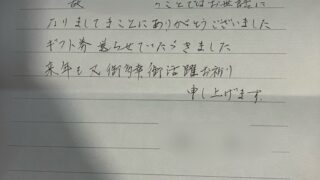 のことではお世話に
なりましてまことにありがとうございました
ギフト券送らせていただきました
来年も又御多幸御活躍お祈り
申し上げます